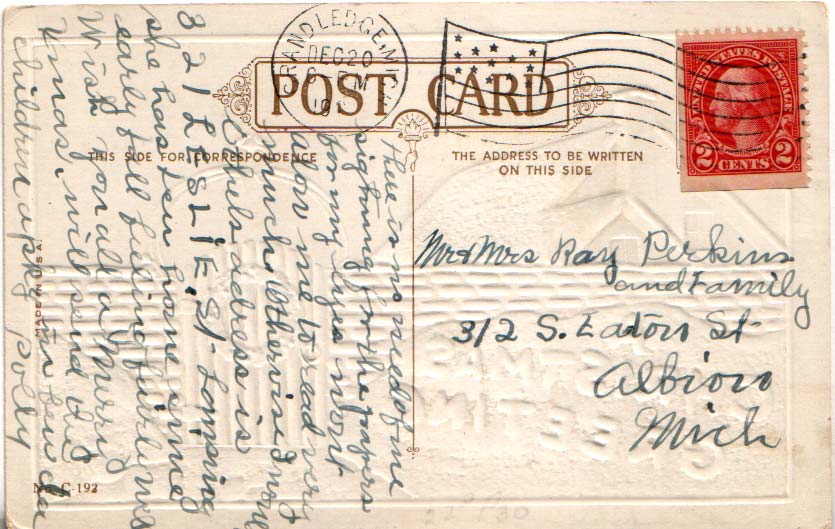 GRAND LEDGE, MICH.
DEC 20
PM
19
POST CARD
UNITED STATES POSTAGE
2 CENTS 2
THIS SIDE FOR CORRESPONDENCE
THE ADDRESS TO BE WRITTEN
ON THIS SIDE
There is no need of me
signing for the papers
for my eyes wont
alow me to read very
much. Otherwise
Ethels adress is
321 LESLIE, St- Lansing
she has ben home since
early fall feeling fairly
Wish you all a Merry
Xmas, will send
children a pkg Polly
Mr & Mrs Ray Perkins
and Family
312 S. Eaton St-
Albion
Mich
MADE IN U.S.A.
No. C-192